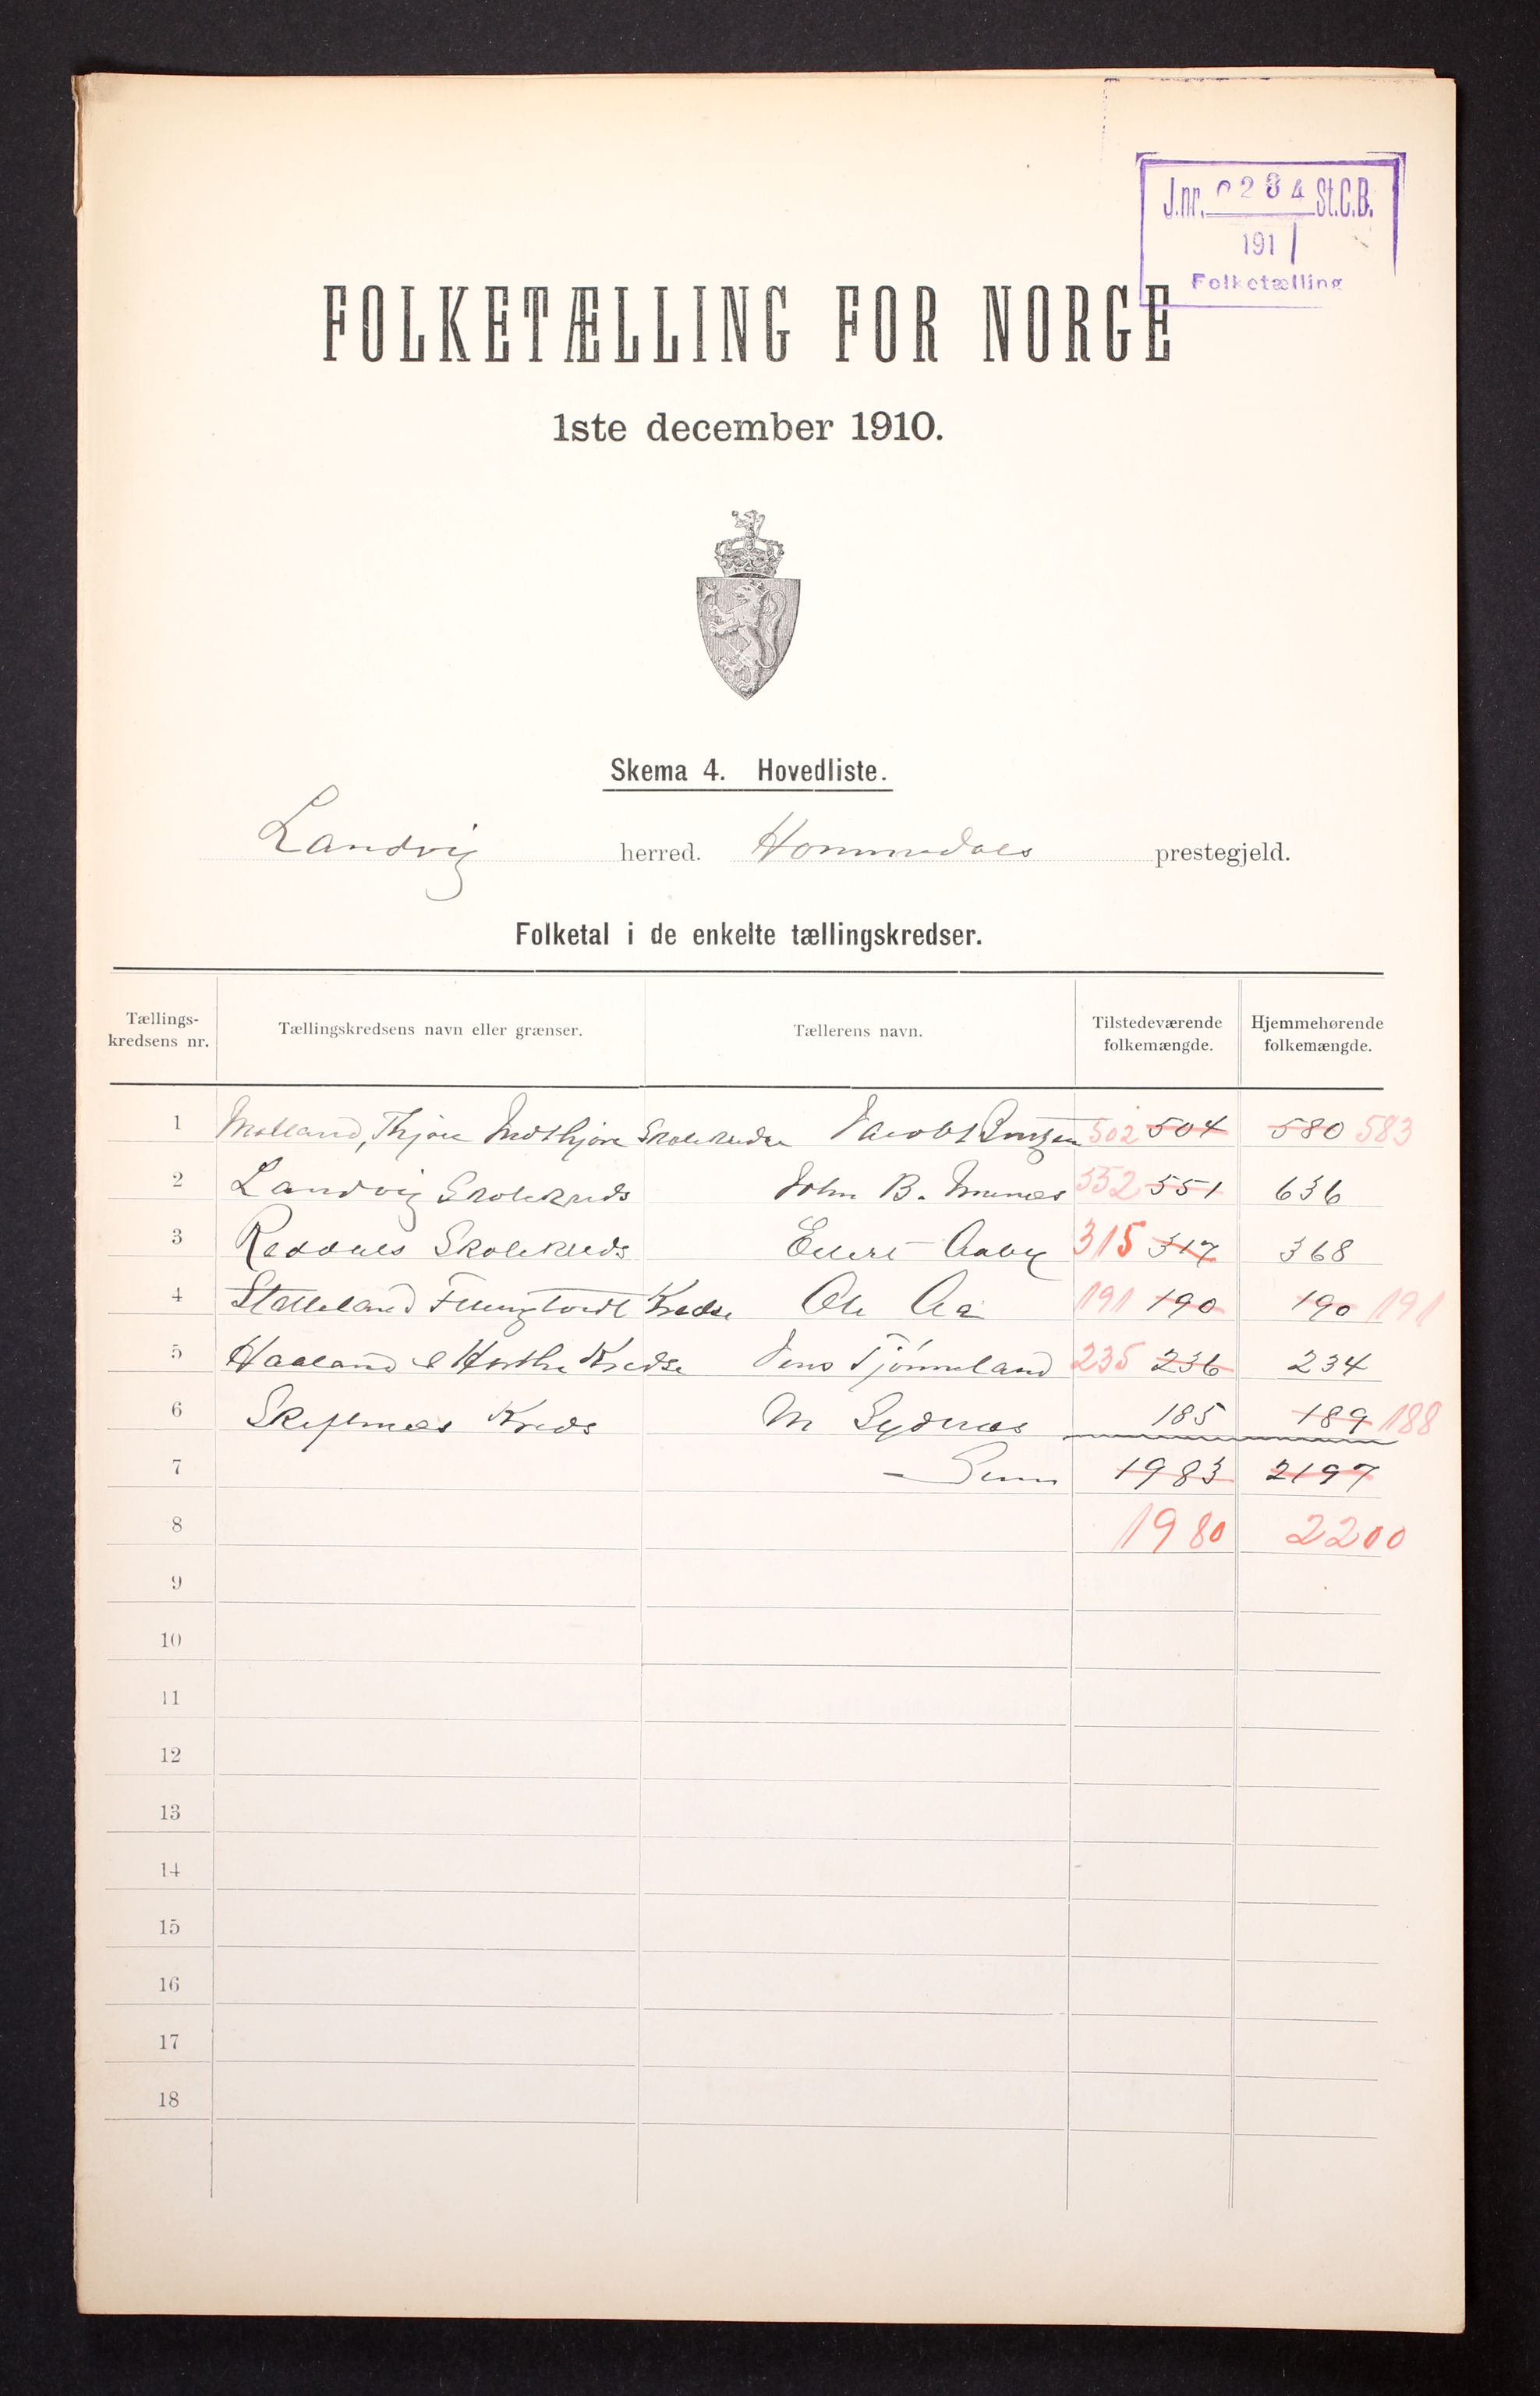 J.nr. 0284 St.C.B.
1911
Folketælling
FOLKETÆLLING FOR NORGE
1ste december 1910.
Skema 4. Hovedliste.
Landvig herred. Hommedals prestegjeld.
Folketal i de enkelte tællingskredser.
Tællings-kredsens nr. Tællingskredsens navn eller grænser. Tællerens navn. Tilstedeværende folkemængde. Hjemmehørende folkemængde.
1 Molland, Thjore Indthjore Skolekredse Jacob 502 504 580 583
2 Landvig Skolekreds John B. 552 551 636
3 Reddals Skolekreds Eilert Aaby 315 317 368
4 Stalleland Kredse Ole Aa 191 190 190 191
5 Haaland & Horthe Kredse Jens Tjönneland 235 236 234
6 Skiftenæs Kreds M Sydnæs 185 189 188
7 Sum 1983 2197
8 1980 2200
9
10
11
12
13
14
15
16
17
18